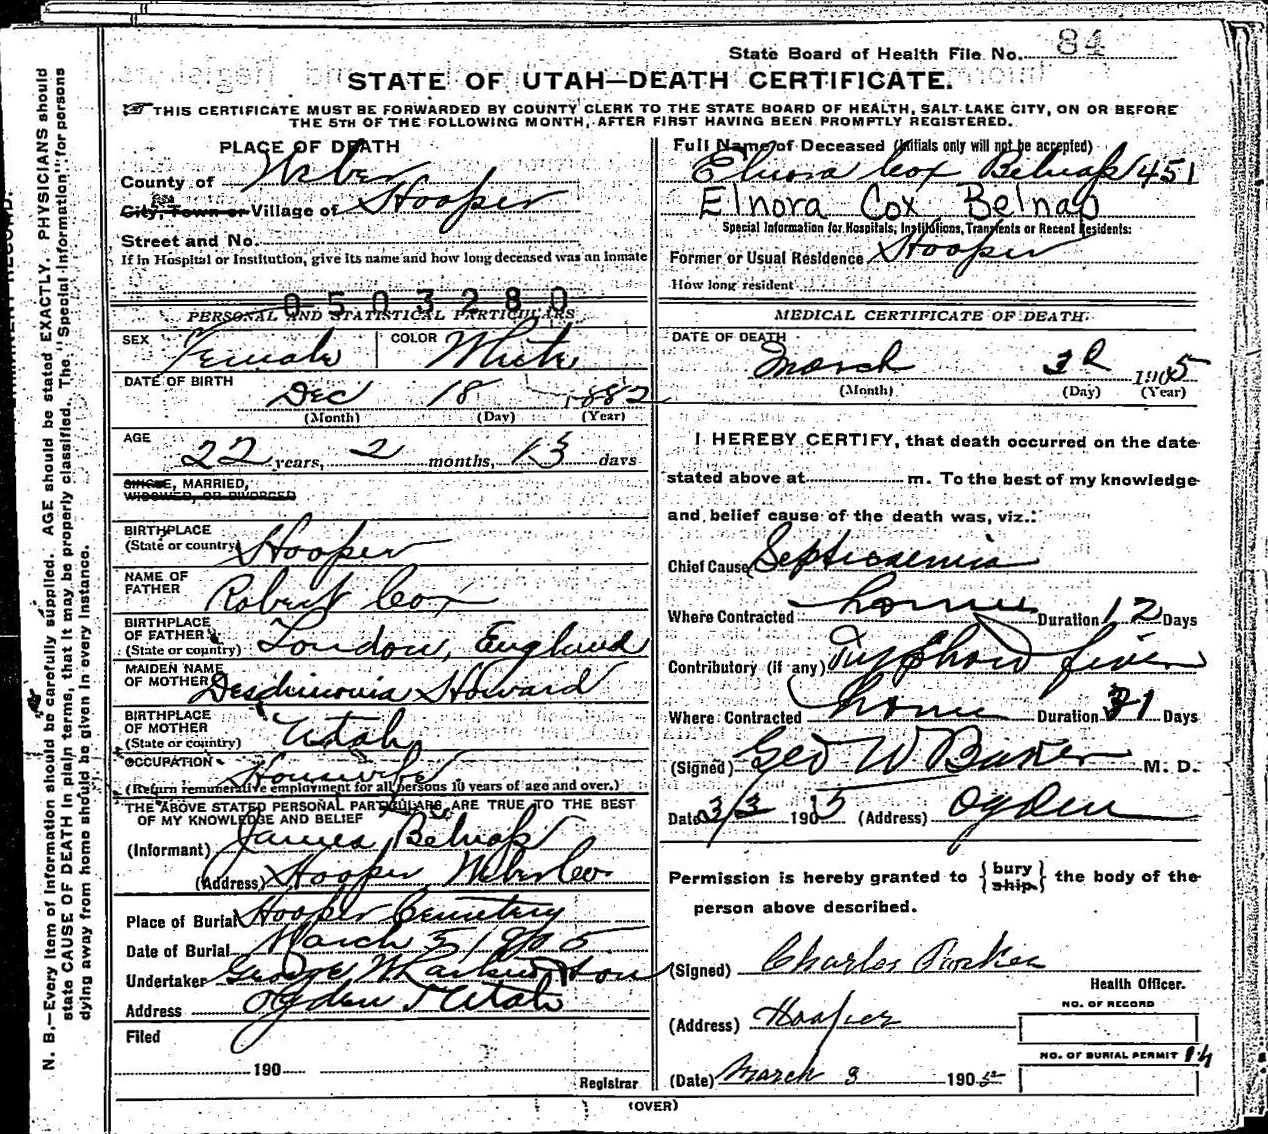 State Board of Health File No. 84
STATE OF UTAH—DEATH CERTIFICATE.
THIS CERTIFICATE MUST BE FORWARDED BY COUNTY CLERK TO THE STATE BOARD OF HEALTH, SALT LAKE CITY, ON OR BEFORE
THE 5TH OF THE FOLLOWING MONTH, AFTER FIRST HAVING BEEN PROMPTLY REGISTERED.
PLACE OF DEATH
County of Weber
City, Town or Village of Hooper
Street and No.
If in Hospital or Institution, give its name and how long deceased was an inmate
0503280
PERSONAL AND STATISTICAL PARTICULARS
SEX Female COLOR White
DATE OF BIRTH
Dec 18 1882
(Month) (Day) (Year)
AGE
22 years, 2 months, 13 days
SINGLE, MARRIED,
WIDOWED, OR DIVORCED
BIRTHPLACE
(State or country) Hooper
NAME OF
FATHER Robert Cox
BIRTHPLACE
OF FATHER
(State or country) London, England
MAIDEN NAME
OF MOTHER Howard
BIRTHPLACE
OF MOTHER
(State or country) Utah
OCCUPATION Housewife
(Return remunerative employment for all persons 10 years of age and over.)
THE ABOVE STATED PERSONAL PARTICULARS ARE TRUE TO THE BEST
OF MY KNOWLEDGE AND BELIEF
(Informant) James Belnap
(Address) Hooper Weber Co
Place of Burial Hooper Cemetery
Date of Burial March 5 1905
Undertaker George W Larkin & Son
Address Ogden Utah
Filed
190
Registrar
Full Name of Deceased (Initials only will not be accepted)
Elnora Cox Belnap 451
Elnora Cox Belnap
Special Information for Hospitals, Institutions, Transients or Recent Residents:
Former or Usual Residence Hooper
How long resident
MEDICAL CERTIFICATE OF DEATH.
DATE OF DEATH
March 3d 1905
(Month) (Day) (Year)
I HEREBY CERTIFY, that death occurred on the date
stated above at m. To the best of my knowledge
and belief cause of the death was, viz.:
Chief Cause Septicaemia
Where Contracted home Duration 12 Days
Contributory (if any) Typhoid fever
Where Contracted home Duration 31 Days
(Signed) Geo W Baker M. D.
Date 3/3 1905 (Address) Ogden
Permission is hereby granted to {bury
ship} the body of the
person above described.
(Signed) Charles Parker
Health Officer.
(Address) Hooper
NO. OF RECORD
NO. OF BURIAL PERMIT 14
(Date) March 3 1905
(OVER)
N. B.—Every item of information should be carefully supplied. AGE should be stated EXACTLY. PHYSICIANS should
state CAUSE OF DEATH in plain terms, that it may be properly classified. The "Special Information" for persons
dying away from home should be given in every instance.